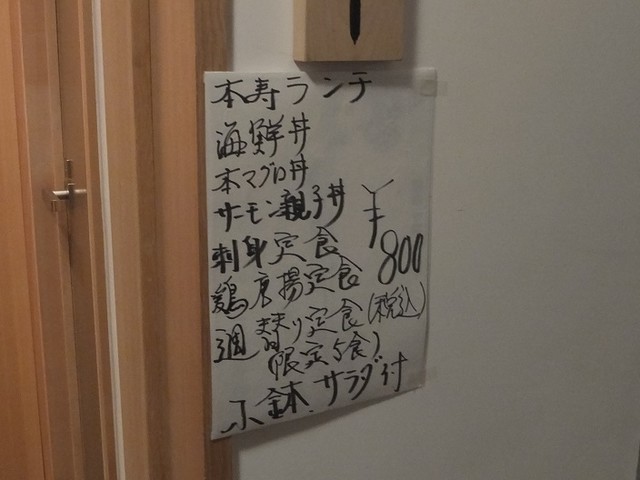 本寿ランチ
海鮮丼
本マグロ丼
サーモン親子丼
¥800
刺身定食
鶏唐揚定食
(税込)
週替り定食
(限定5食)
小鉢.サラダ付